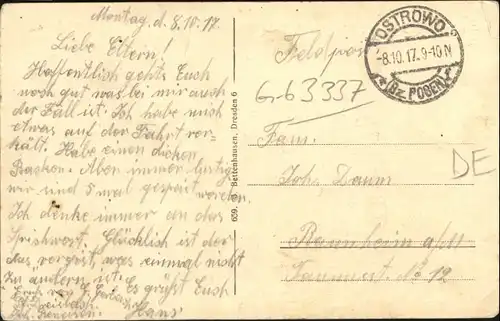 Montag, d. 8.10.17.
Liebe Eltern!
Hoffentlich gehts Euch
noch gut was bei mir auch
der Fall ist. Ich habe mich
etwas auf der Fahrt ver-
kält. Habe einen dicken
Backen. Aber immer lustig
wir sind 5 mal gespeist worden.
Ich denke immer an das
Sprichwort. Glücklich ist der
das vergist, was einmal nicht
zu ändern ist. Es grüßt Euch
Hans
609. Bettenhausen, Dresden 6
Feldpost
OSTROWO
-8.10.17.9-10N
(Bz. POSEN)
G-63337
Fam.
Joh. Daum
DE
Taunusst. No 12